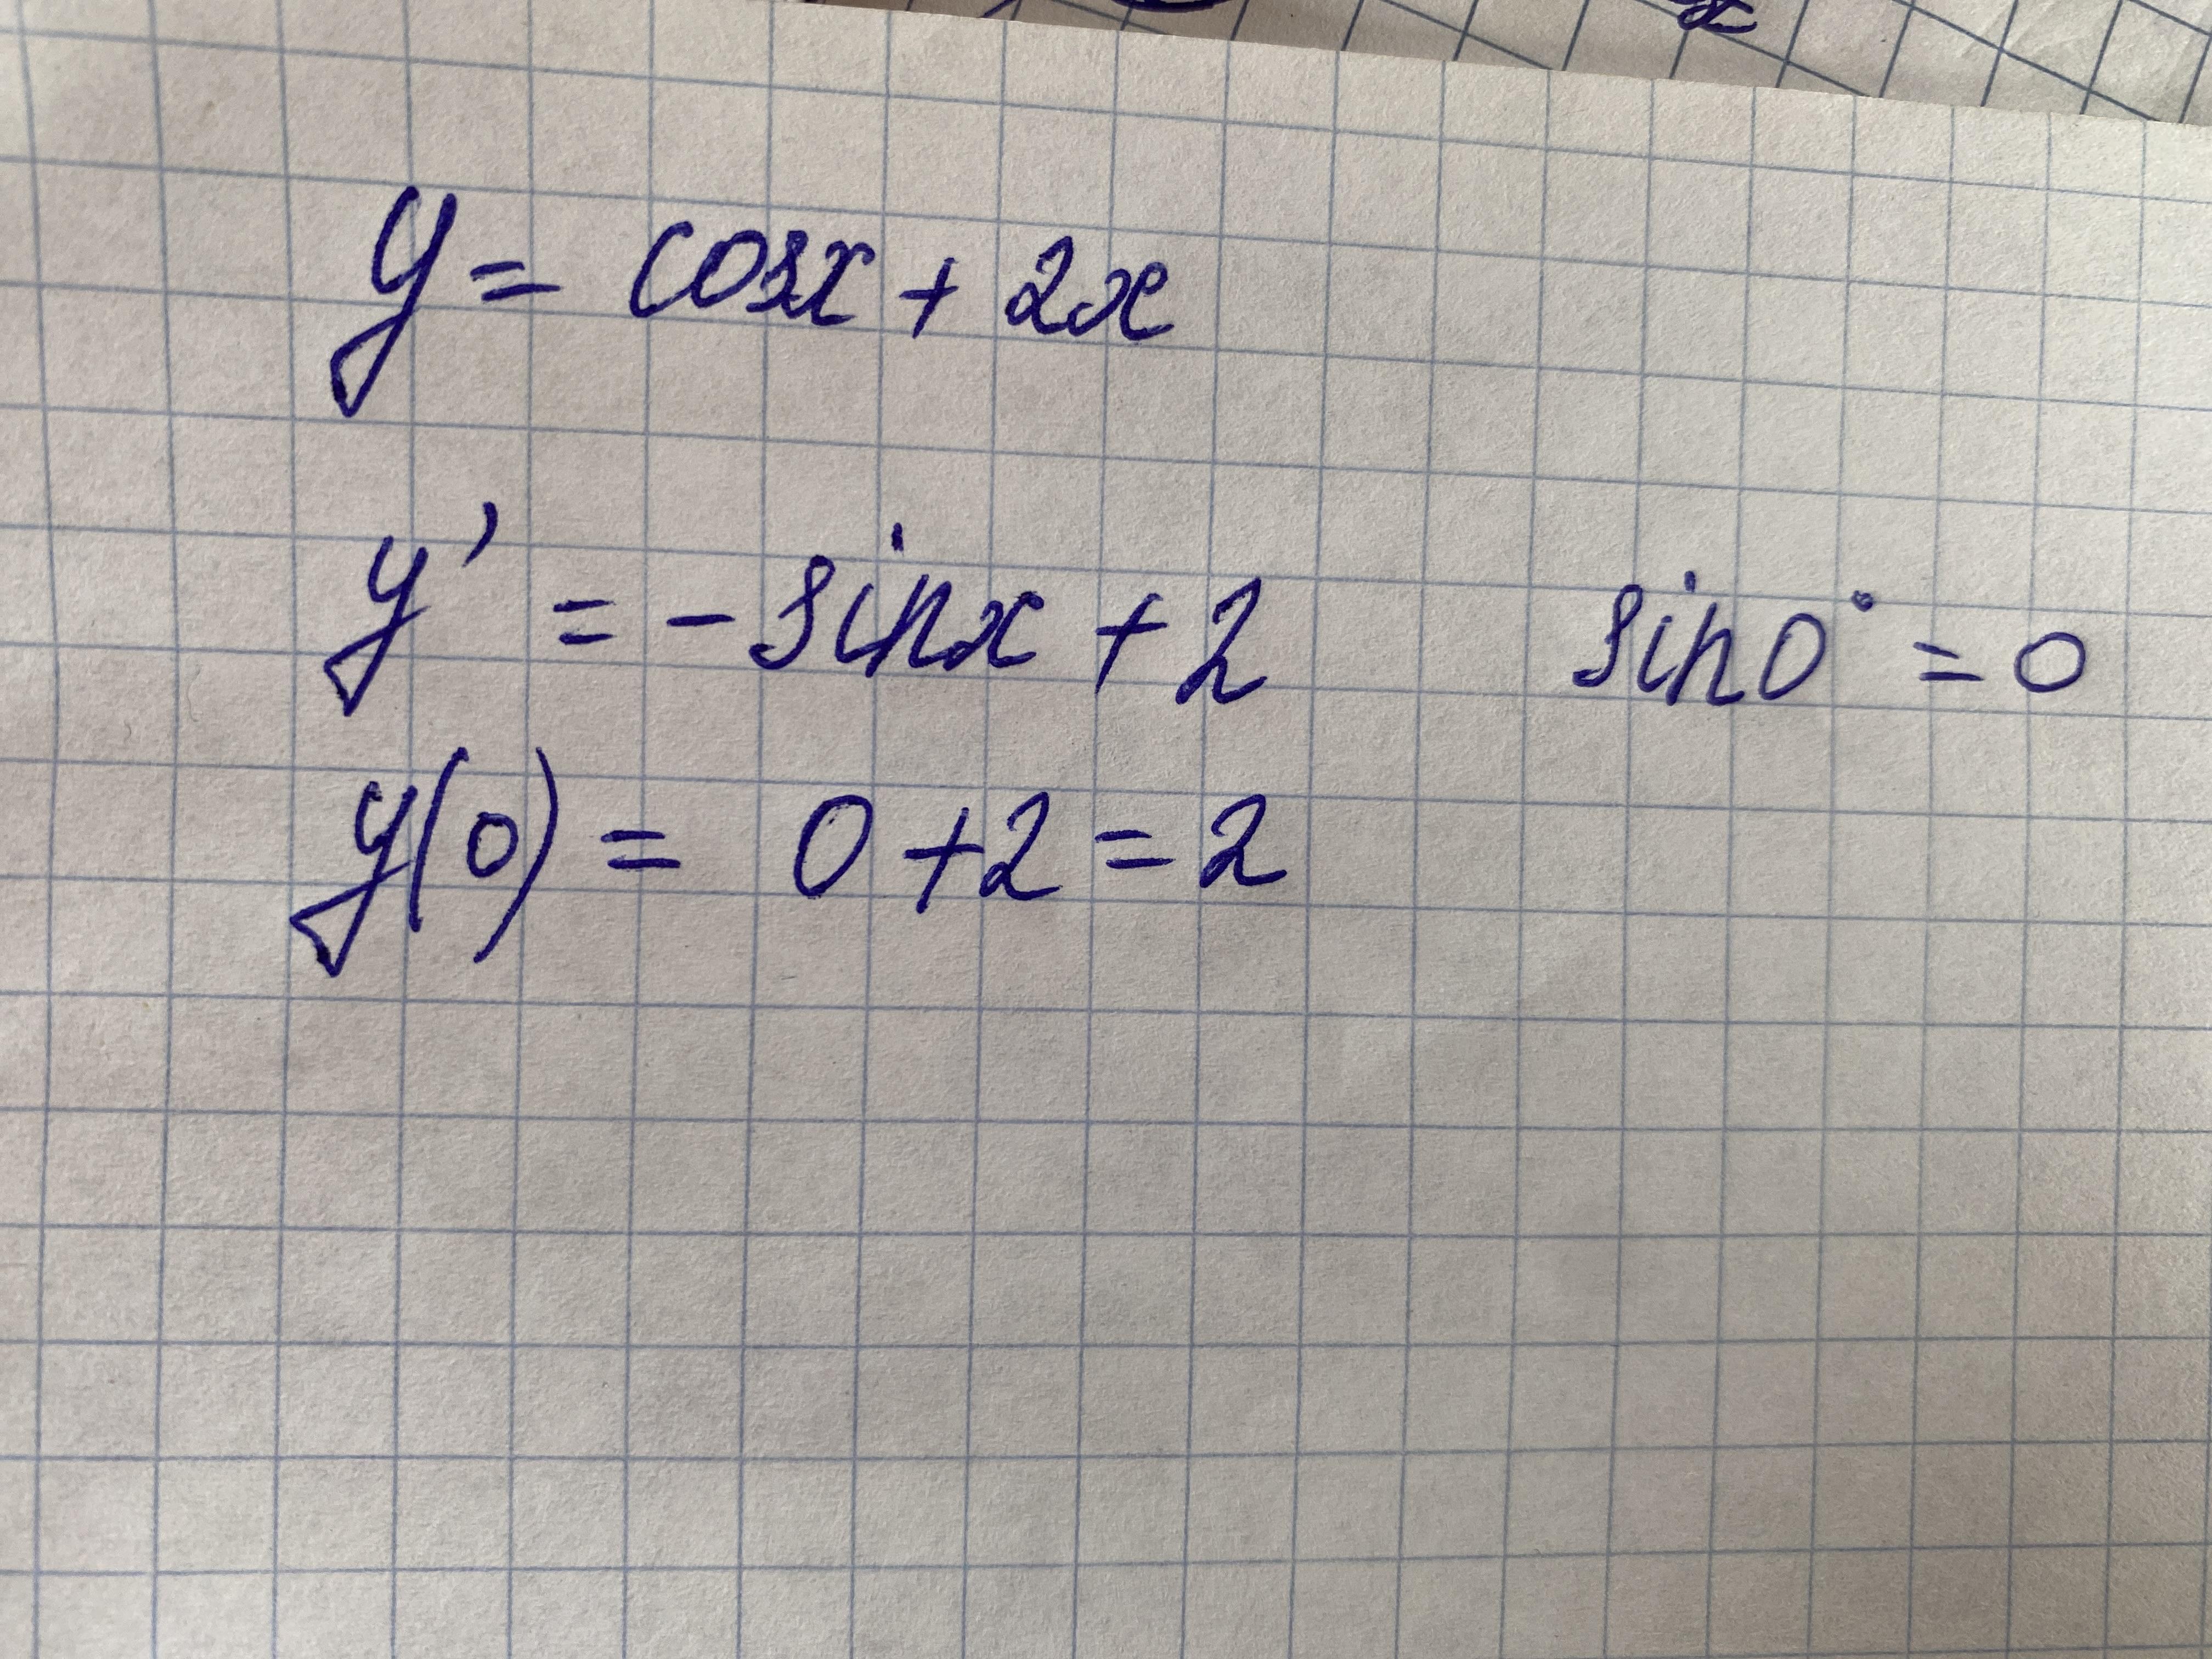 y = cosx + 2x
y' = -sinx + 2 sin0° = 0
y(0) = 0 + 2 = 2